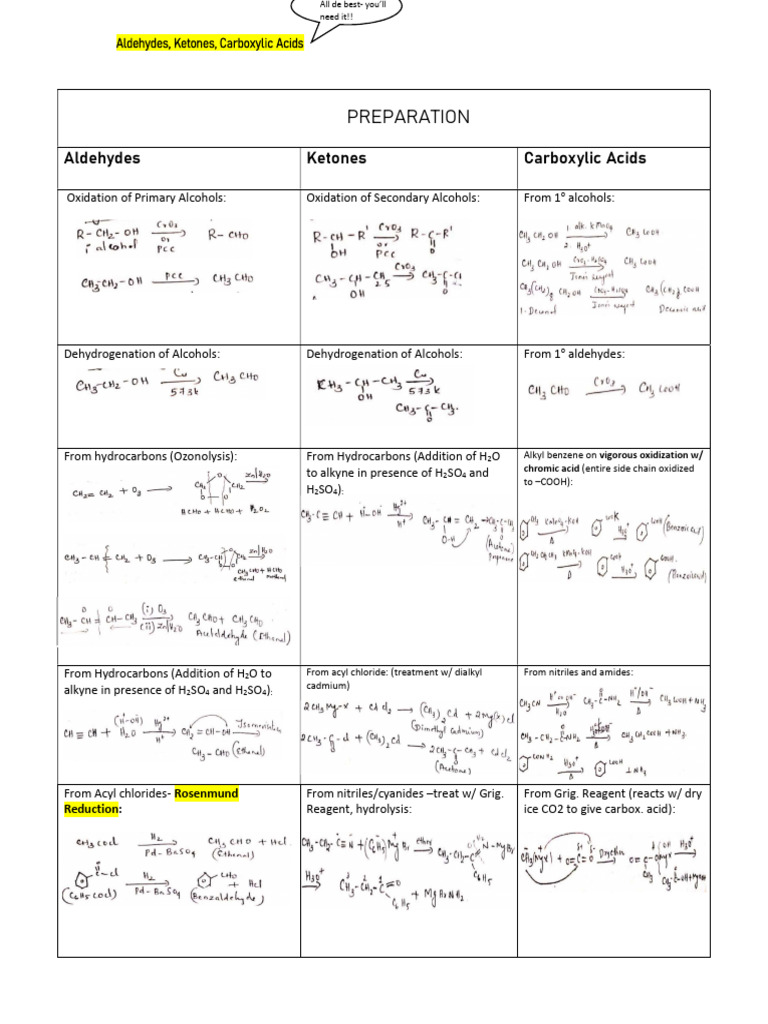 All de best- you'll
need it!!
Aldehydes, Ketones, Carboxylic Acids
PREPARATION
Aldehydes
Ketones
Carboxylic Acids
Oxidation of Primary Alcohols:
R-CH₂-OH CrO₃ or PCC R-CHO
1 alcohol
CH₃-CH₂-OH PCC CH₃CHO
Oxidation of Secondary Alcohols:
R-CH-R' CrO₃ or PCC R-C-R'
OH O
CH₃-CH-CH₃ CrO₃ CH₃-C-
OH
From 1⁰ alcohols:
CH₃CH₂OH 1. alk. KMnO₄ CH₃COOH
2. H₃O⁺
CH₃CH₂OH CrO₃-H₂SO₄ CH₃COOH
Jones reagent
CH₃(CH₂)₈CH₂OH CrO₃-H₂SO₄ CH₃(CH₂)₈COOH
1-Decanol Jones reagent Decanoic acid
Dehydrogenation of Alcohols:
CH₃-CH₂-OH Cu 573K CH₃CHO
Dehydrogenation of Alcohols:
CH₃-CH-CH₃ Cu 573K
OH
CH₃-C-CH₃.
O
From 1⁰ aldehydes:
CH₃CHO CrO₃ CH₃COOH
From hydrocarbons (Ozonolysis):
CH₂=CH₂ + O₃ CH₂ O CH₂ Zn/H₂O
O O
HCHO + HCHO + H₂O₂
CH₃-CH=CH₂ + O₃ CH₃-CH Zn/H₂O
CH₃CHO + HCHO
ethanal methanal
CH₃-CH=CH-CH₃ (i) O₃ (ii) Zn/H₂O CH₃CHO + CH₃CHO
Acetaldehyde (Ethanal)
From Hydrocarbons (Addition of H₂O
to alkyne in presence of H₂SO₄ and
H₂SO₄):
CH₃-C≡CH + H-OH Hg²⁺ H⁺ CH₃-C=CH₂ CH₃-C-CH₃
O-H O
(Acetone)
Propanone
Alkyl benzene on vigorous oxidization w/
chromic acid (entire side chain oxidized
to –COOH):
CH₃ KMnO₄-KOH Δ COOK H₃O⁺ COOH (Benzoic acid)
CH₂CH₂CH₃ KMnO₄-KOH Δ COOK H₃O⁺ COOH
(Benzoic acid)
From Hydrocarbons (Addition of H₂O to
alkyne in presence of H₂SO₄ and H₂SO₄):
(H-OH)
CH≡CH + H₂O Hg²⁺ H⁺ CH₂=CH-OH Isomerisation
CH₃-CHO (Ethanal)
From acyl chloride: (treatment w/ dialkyl
cadmium)
2CH₃Mg-X + CdCl₂ (CH₃)₂Cd + 2Mg(X)Cl
(Dimethyl cadmium)
2CH₃-C-Cl + (CH₃)₂Cd
O
2CH₃-C-CH₃ + CdCl₂
O
(Acetone)
From nitriles and amides:
CH₃CN H⁺ or OH⁻ H₂O CH₃-C-NH₂ H⁺/OH⁻ CH₃COOH + NH₃
CH₃-CH₂-C-NH₂ H₂O Δ CH₃CH₂COOH + NH₃
CONH₂ H₃O⁺ Δ COOH + NH₃
From Acyl chlorides- Rosenmund
Reduction:
CH₃COCl H₂ Pd-BaSO₄ CH₃CHO + HCl
(Ethanal)
C-Cl H₂ Pd-BaSO₄ CHO + HCl
(C₆H₅COCl) (Benzaldehyde)
From nitriles/cyanides –treat w/ Grig.
Reagent, hydrolysis:
CH₃-CH₂-C≡N + (C₆H₅)MgBr ether CH₃-CH₂-C=N-MgBr
C₆H₅
H₃O⁺ CH₃-CH₂-C=O + MgBrNH₂
C₆H₅
From Grig. Reagent (reacts w/ dry
ice CO2 to give carbox. acid):
CH₃MgX + O=C=O Dry ether O=C-OMgX H₃O⁺
CH₃
CH₃-C-OH +